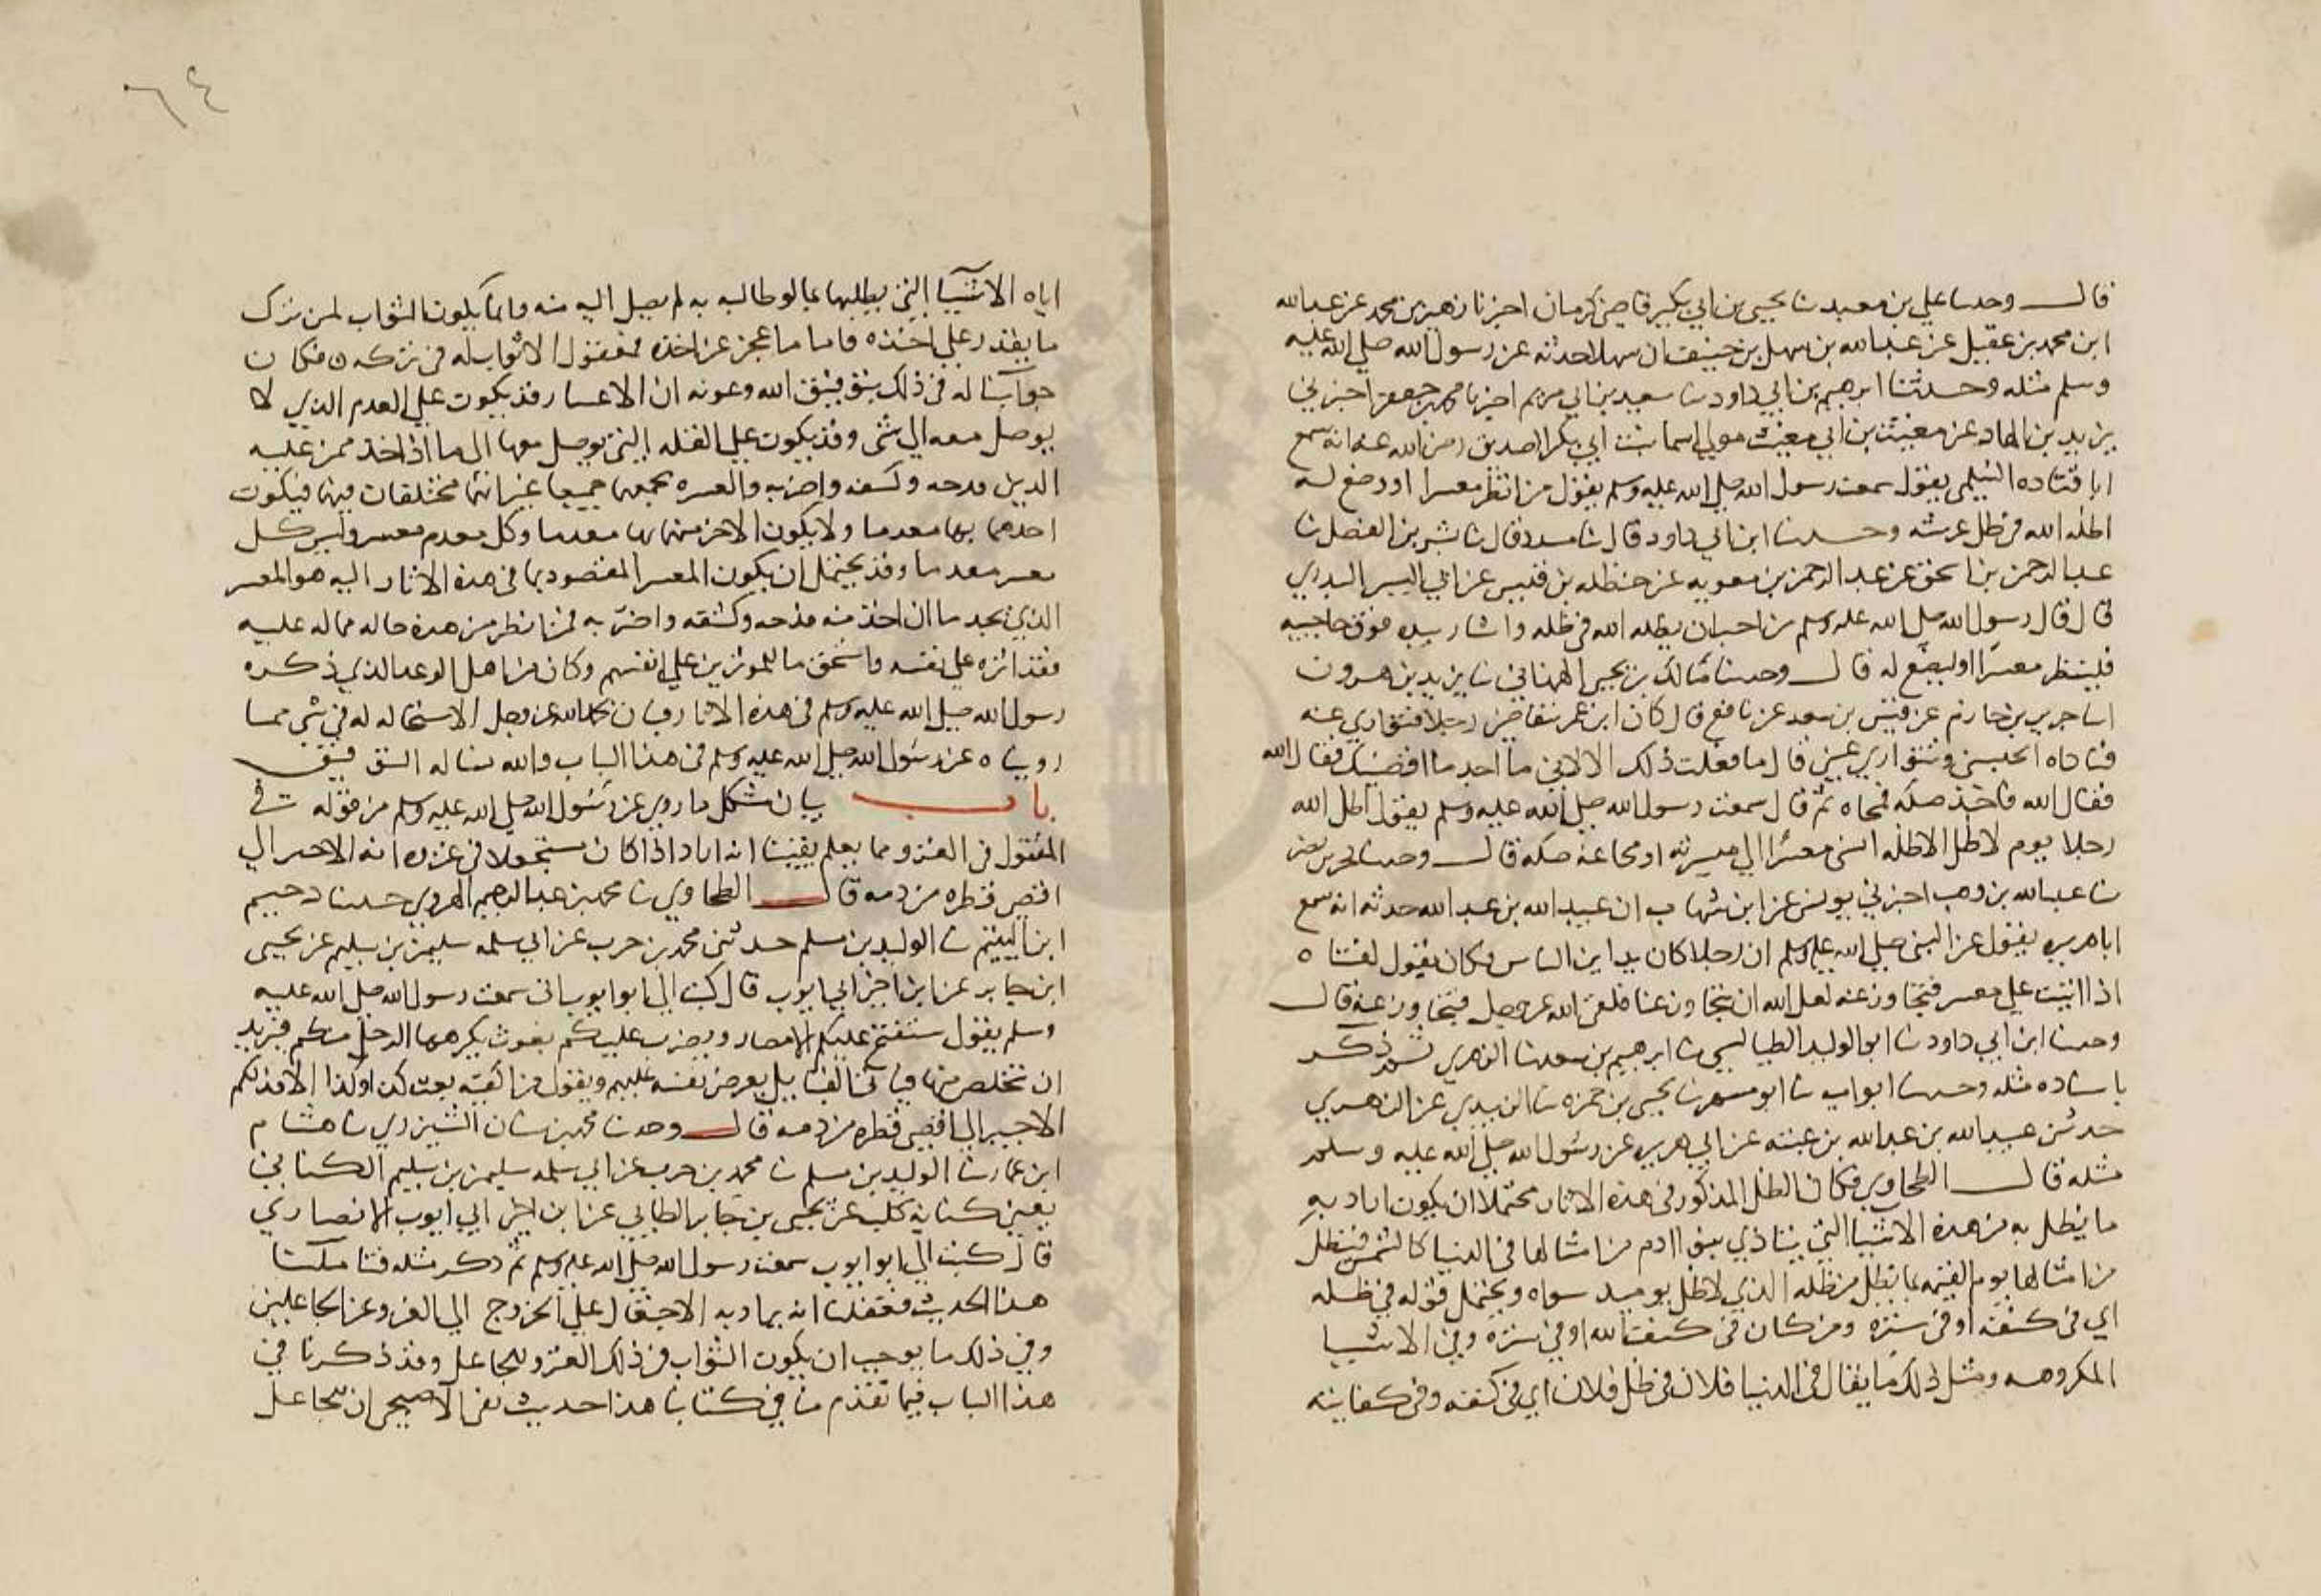 قال وحدثنا علي بن معبد ثنا يحيى بن ابي بكير قاضي كرمان اخبرنا زهير بن محمد عن عبد الله
ابن محمد بن عقيل عن عبد الله بن سهل بن حنيف ان سهلا حدثه عن رسول الله صلى الله عليه
وسلم مثله وحدثنا ابرهيم بن ابي داود ثنا سعيد بن ابي مريم اخبرنا محمد بن جعفر اخبرني
يزيد بن الهاد عن معيث بن ابي معيث مولى اسما بنت ابي بكر الصديق رضي الله عنه انه سمع
ابا قتاده السلمي يقول سمعت رسول الله صلى الله عليه وسلم يقول من انظر معسرا او وضع له
اظله الله في ظل عرشه وحدثنا ابن ابي داود قال ثنا مسدد قال ثنا بشر بن المفضل ثنا
عبد الرحمن بن اسحق عن عبد الرحمن بن معويه عن حنظله بن قيس عن ابي اليسر البدري
قال قال رسول الله صلى الله عليه وسلم من احب ان يظله الله في ظله واشار بيده فوق حاجبيه
فلينظر معسرا او ليضع له قال وحدثنا مالك بن يحيى الهمداني ثنا يزيد بن هرون
انا جرير بن حازم عن بن سعد عن نافع قال كان ابن عمر رجلا فتوارى عنه
فناداه اتحبسني وتتوارى عني قال ما فعلت ذلك الا لاني ما اجد ما اقضيك فقال الله
فقال الله فاخذ صكه فمحاه ثم قال سمعت رسول الله صلى الله عليه وسلم يقول اظل الله
رجلا يوم لا ظل الا ظله انسى معسرا الى ميسرته او محا عنه صكه قال وحدثنا بحر بن نصر
ثنا عبد الله بن وهب اخبرني يونس عن ابن شهاب ان عبيد الله بن عبد الله حدثه انه سمع
ابا هريره يقول عن النبي صلى الله عليه وسلم ان رجلا كان يداين الناس فكان يقول لفتاه
اذا اتيت على معسر فتجاوز عنه لعل الله ان يتجاوز عنا فلقى الله عز وجل فتجاوز عنه قال
وحدثنا ابن ابي داود ثنا ابو الوليد الطيالسي ثنا ابرهيم بن سعد ثنا الزهري ثم ذكر
باسناده مثله وحدثنا ابو اميه ثنا ابو مسهر ثنا يحيى بن حمزه ثنا الزبيدي عن الزهري
حدثني عبيد الله بن عبد الله بن عتبه عن ابي هريره عن رسول الله صلى الله عليه وسلم
مثله قال الطحاوي فكان الظل المذكور في هذه الاثار محتملا ان يكون اراد به
ما يظل به من هذه الاشيا التي يتاذى بنوا ادم من امثالها في الدنيا كالشمس فيتظل
من امثالها يوم القيمه بما يظل من ظله الذي لا ظل يوميد سواه ويحتمل قوله في ظله
اي في كنفه او في ستره ومن كان في كنف الله او في ستره وفي الاشيا
المكروهه ومثل ذلك ما يقال في الدنيا فلان في ظل فلان اي في كنفه وفي كفايته
٦٤
اياه الاشيا التي يطلبها بما لو طالبه به لم يصل اليه منه وانما يكون الثواب لمن ترك
ما يقدر على اخذه فاما ما عجز عن اخذه فمعقول الا ثواب له في تركه فكان
جوابنا له في ذلك بتوفيق الله وعونه ان الاعسار قد يكون على العدم الذي لا
يوصل معه الى شى وقد يكون على القله التي يوصل معها الى ما اذا اخذ ممن عليه
الدين فدحه وكشفه واضر به والعسره تجمعهما جميعا غير انهما مختلفان فيها فيكون
احدهما بها معدما ولا يكون الاخر منهما بها معدما وكل معدم معسر وليس كل
معسر معدما وقد يحتمل ان يكون المعسر المقصود بما في هذه الاثار اليه هو المعسر
الذي يجد ما ان اخذ منه فدحه وكشفه واضر به فمن انظر من هذه حاله مما له عليه
فقد اثره على نفسه فاستحق ما للموثرين على انفسهم وكان من اهل الوعد الذي ذكره
رسول الله صلى الله عليه وسلم في هذه الاثار وبان بحمد الله عز وجل الاستحاله له في شى مما
رويناه عن رسول الله صلى الله عليه وسلم في هذا الباب والله نساله التوفيق
باب بيان مشكل ما روي عن رسول الله صلى الله عليه وسلم من قوله في
المقتول في الغزو مما يعلم يقينا انه اراد اذا كان مستجعلا في غزوه انه الاجير الى
اقصى قطره من دمه قال الطحاوي ثنا محمد بن عبد الرحيم الهروي حدثنا دحيم
ابن اليتيم ثنا الوليد بن مسلم حدثني محمد بن حرب عن ابي سلمه سليمن بن سليم عن يحيى
ابن جابر عن ابن اخي ابي ايوب قال كتب الي ابو ايوب اني سمعت رسول الله صلى الله عليه
وسلم يقول ستفتح عليكم الامصار ويضرب عليكم بعوث يكرهها الرجل منكم فيريد
ان يتخلص منها فياتي القبايل يعرض نفسه عليهم ويقول من اكفيه بعث كذا وكذا الا فذلكم
الاجير الى اقصى قطره من دمه قال وحدثنا محمد بن سنان الشيزري ثنا هشام
ابن عمار ثنا الوليد بن مسلم ثنا محمد بن حرب عن ابي سلمه سليمن بن سليم الكناني
يعني كنانه كلب عن يحيى بن جابر الطايي عن ابن اخي ابي ايوب الانصاري
قال كتب الي ابو ايوب سمعت رسول الله صلى الله عليه وسلم ثم ذكر مثله فتاملنا
هذا الحديث فعقلنا انه يراد به الاجتعال على الخروج الى الغزو عن الجاعلين
وفي ذلك ما يوجب ان يكون الثواب في ذلك الغزو للجاعل وقد ذكرنا في
هذا الباب فيما تقدم منا في كتابنا هذا حديث شفي الاصبحي ان للجاعل